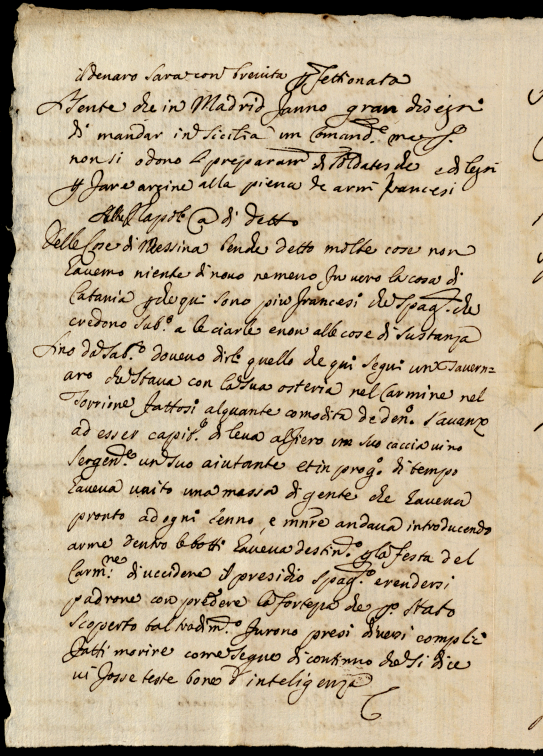 il denaro sarà con brevità perfettionato
Sente che in Madrid fanno gran disegni
di mandar in Sicilia un Comand.e ma p.
non si odono le preparam.i di soldatesche e di legni
per fare argine alla piena de armi francesi
Napoli a di detto
Delle cose di Messina benche detto molte cose non
havemo niente di novo ne meno in vero la cosa di
Catania che qui sono più francesi che Spag.li che
credono sub.o a le ciarle e non alle cose di sustanza
Fino da Sab.o dovevo dirle quello che qui seguì un Tavern=
aro che stava con la sua osteria nel Carmine nel
Torrione fattosi alquante comodità de den.o s'avanzò
ad esser capit.o di leva alfiero un suo cacciavino
sergen.e un suo aiutante et in prog.o di tempo
haveva unito una massa di gente che haveva
pronto ad ogni cenno, e mentre andava introducendo
arme dentro le botti haveva destin.o per la festa del
Carm.ne di uccidere il presidio Spag.lo e rendersi
padrone con prendere la fortezza che per stato
scoperto tal tradim.o furono presi diversi complici
fatti morire come segue di continuo che si dice
vi fosse teste bone d'inteligenza